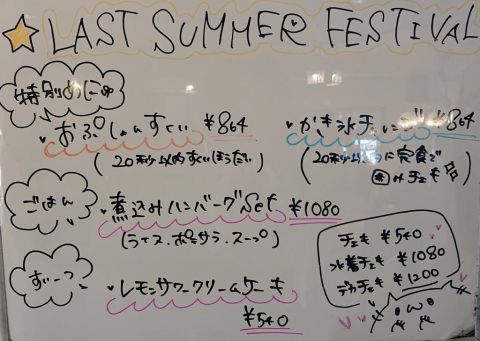 LAST SUMMER FESTIVAL
特別めにゅ
おぷしょんすくい ¥864
(20秒以内すくいほうだい)
かき氷チャレンジ ¥864
(20秒以内に完食で
チェキ
ごはん
煮込みハンバーグSet ¥1080
(ライス・ポテサラ・スープ)
すいーつ
レモンサワークリームケーキ
¥540
チェキ ¥540
水着チェキ ¥1080
デカチェキ ¥1200